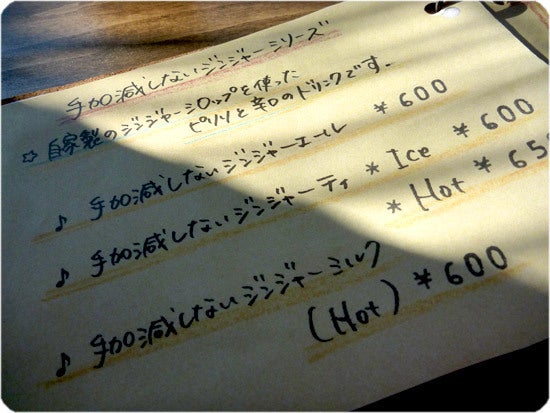 手加減しないジンジャーシリーズ
☆ 自家製のジンジャーシロップを使った
ピリリと辛口のドリンクです。
♪ 手加減しないジンジャーエール ￥600
♪ 手加減しないジンジャーティ * Ice ￥600
* Hot ￥65
♪ 手加減しないジンジャーミルク
(Hot) ￥600